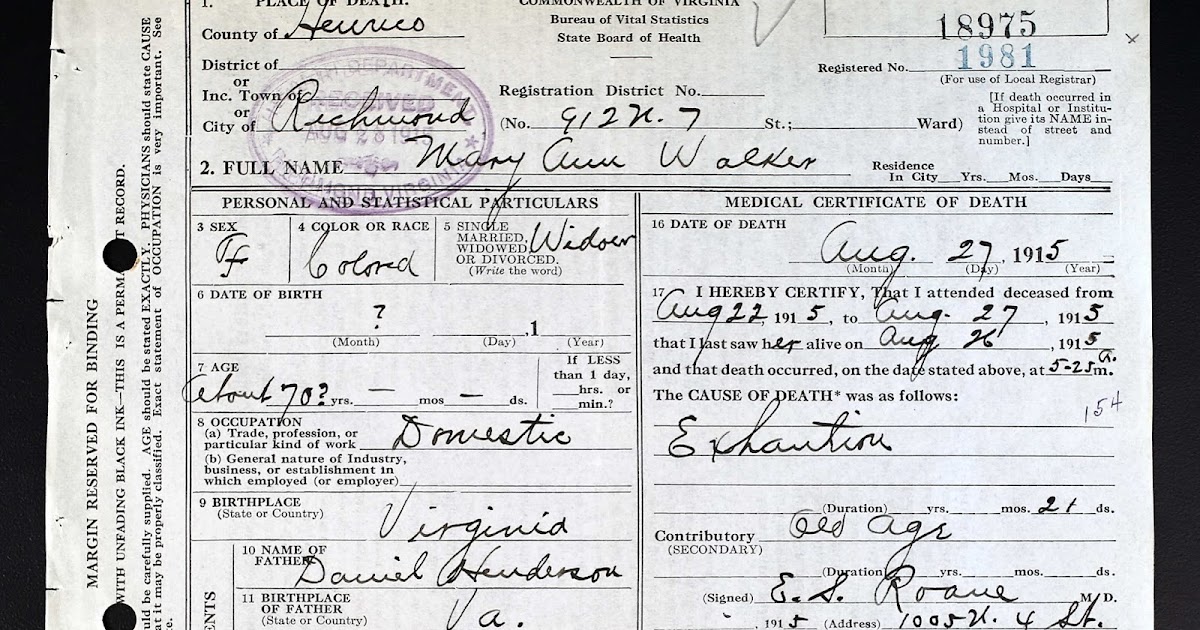 1. PLACE OF DEATH. COMMONWEALTH OF VIRGINIA
County of Henrico
Bureau of Vital Statistics
State Board of Health
18975
1981
District of
Registered No.
(For use of Local Registrar)
or
Inc. Town of
or
City of Richmond
RECEIVED
AUG 28 191
Registration District No.
(No. 912 N. 7 St.; Ward)
[If death occurred in
a Hospital or Institu-
tion give its NAME in-
stead of street and
number.]
2. FULL NAME Mary Ann Walker
Residence
In City Yrs. Mos. Days
PERSONAL AND STATISTICAL PARTICULARS
3 SEX
F
4 COLOR OR RACE
Colored
5 SINGLE
MARRIED,
WIDOWED
OR DIVORCED.
(Write the word)
Widow
6 DATE OF BIRTH
?
,1
(Month) (Day) (Year)
7 AGE
About 70? yrs. — mos — ds.
If LESS
than 1 day,
hrs. or
min.?
8 OCCUPATION
(a) Trade, profession, or
particular kind of work Domestic
(b) General nature of Industry,
business, or establishment in
which employed (or employer)
9 BIRTHPLACE
(State or Country)
Virginia
10 NAME OF
FATHER
Daniel Henderson
11 BIRTHPLACE
OF FATHER
(State or Country)
Va.
MEDICAL CERTIFICATE OF DEATH
16 DATE OF DEATH
Aug. 27, 1915
(Month) (Day) (Year)
17 I HEREBY CERTIFY, That I attended deceased from
Aug 22, 1915, to Aug. 27, 1915
that I last saw her alive on Aug 26, 1915
and that death occurred, on the date stated above, at 5-25 a.m.
The CAUSE OF DEATH* was as follows:
154
Exhaution
(Duration) yrs. mos. 21 ds.
Contributory Old Age
(SECONDARY)
(Duration) yrs. mos. ds.
(Signed) E. S. Roane M/D.
, 1915 (Address) 1005 N. 4 St.
MARGIN RESERVED FOR BINDING
WITH UNFADING BLACK INK—THIS IS A PERMA T RECORD.
uld be carefully supplied. AGE should be stated EXACTLY. PHYSICIANS should state CAUSE
at it may be properly classified. Exact statement of OCCUPATION is very important. See